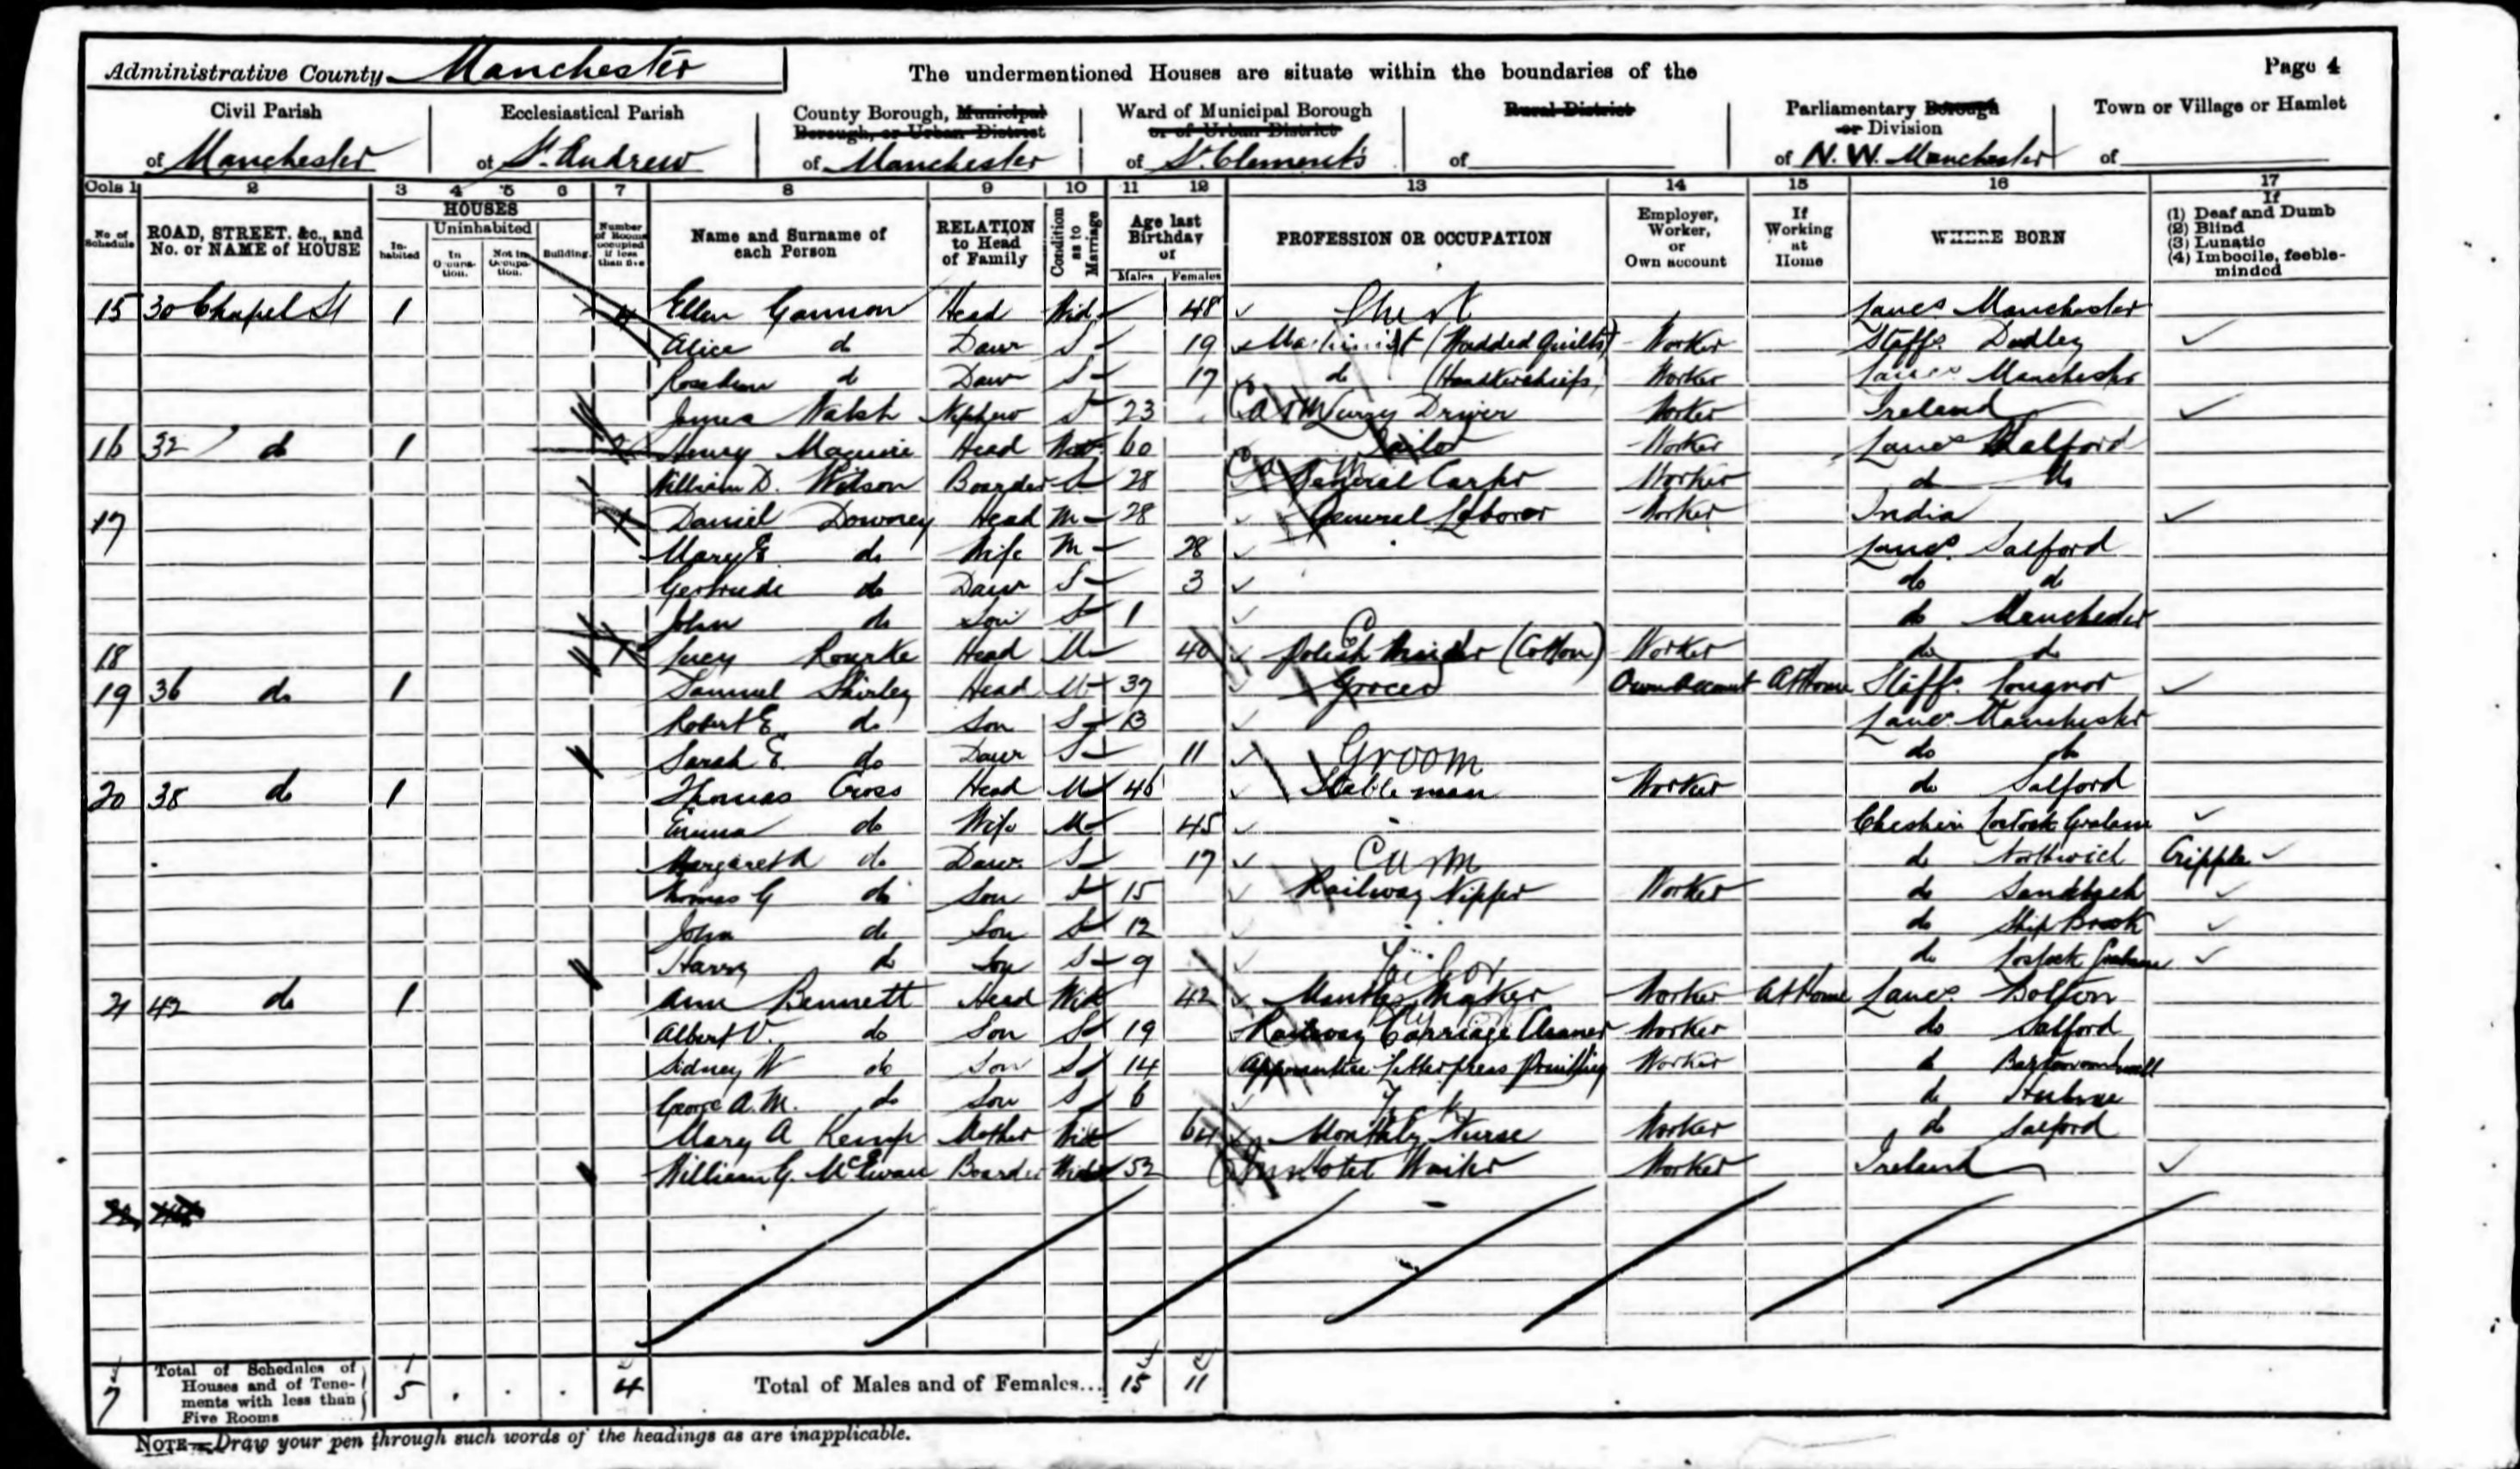 Administrative County Manchester
The undermentioned Houses are situate within the boundaries of the
Page 4
Civil Parish of Manchester
Ecclesiastical Parish of St. Andrew
County Borough, Municipal Borough, or Urban District of Manchester
Ward of Municipal Borough or of Urban District of St. Clements
Rural District of
Parliamentary Borough or Division of N. W. Manchester
Town or Village or Hamlet of
Cols 1 2 3 4 5 6 7 8 9 10 11 12 13 14 15 16 17
No of Schedule
ROAD, STREET, &c., and No. or NAME of HOUSE
HOUSES
Inhabited
Uninhabited
In Occupation.
Not in Occupation.
Building.
Number of Rooms occupied if less than five
Name and Surname of each Person
RELATION to Head of Family
Condition as to Marriage
Age last Birthday of
Males Females
PROFESSION OR OCCUPATION
Employer, Worker, or Own account
If Working at Home
WHERE BORN
If
(1) Deaf and Dumb
(2) Blind
(3) Lunatic
(4) Imbecile, feeble-minded
15 30 Chapel St 1 4 Ellen Gannon Head Wid 48 Lancs Manchester
Alice do Daur S 19 Machinist (Wadded Quilts) Worker Staffs Dudley
do Daur S 17 do (Handkerchiefs) Worker Lancs Manchester
James Walsh Nephew S 23 Lurry Driver Worker Ireland
16 32 do 1 2 Henry Maguire Head 60 Tailor Worker Lancs Salford
William D. Wilson Boarder S 28 General Carter Worker do do
17 1 Daniel Downey Head M 28 General Laborer Worker India
Mary E do Wife M 28 Lancs Salford
Gertrude do Daur S 3 do do
John do Son S 1 do Manchester
18 1 Lucy Rourke Head M 40 Polish Winder (Cotton) Worker do do
19 36 do 1 Samuel Shirley Head M 37 Grocer Own Account At Home Staffs Longnor
Robert E. do Son S 13 Lancs Manchester
Sarah E. do Daur S 11 do do
Groom
20 38 do 1 Thomas Cross Head M 46 Stableman Worker do Salford
Emma do Wife M 45 Cheshire Lostock Gralam
Margaret A do Daur S 17 do Northwich Cripple
Thomas G do Son S 15 Railway Nipper Worker do Sandbach
John do Son S 12 do Ship Brook
Harry do Son S 9 do Lostock Gralam
Tailor
21 42 do 1 Ann Bennett Head Wid 42 Mantle Maker Worker At Home Lancs Bolton
Albert V. do Son S 19 Railway Carriage Cleaner Worker do Salford
Sidney W do Son S 14 Apprentice Letterpress Printing Worker do
George A. M. do Son S 6 do Hulme
Mary A Kemp Mother Wid 64 Monthly Nurse Worker do Salford
William G. McEwan Boarder Wid 52 Hotel Waiter Worker Ireland
7 Total of Schedules of Houses and of Tenements with less than Five Rooms 5 4 Total of Males and of Females... 15 11
NOTE—Draw your pen through such words of the headings as are inapplicable.